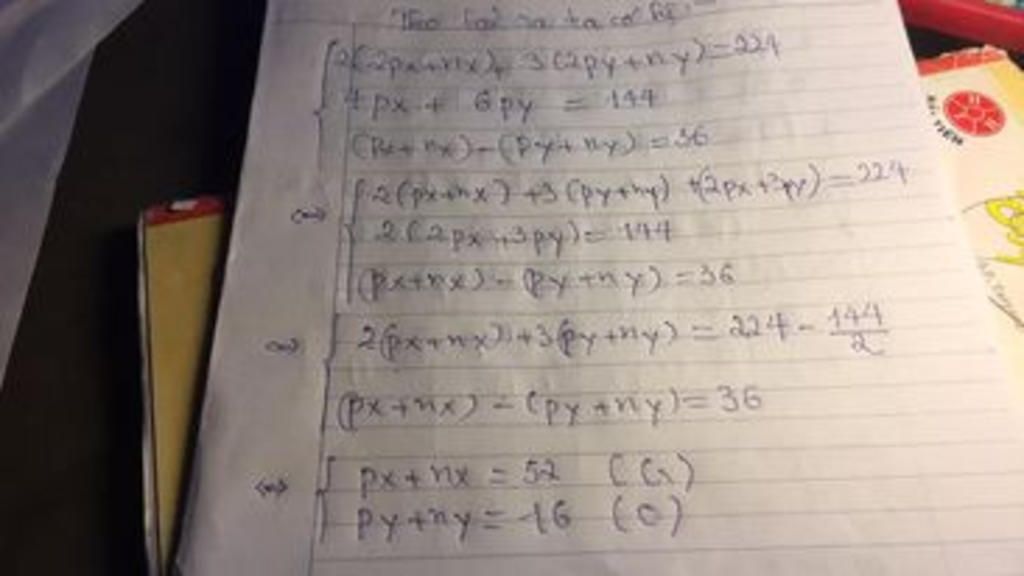 Theo bài ra ta có hệ:
2(2px+nx)+3(2py+ny)=224
4px + 6py = 144
(px+nx)-(py+ny)=36
⇔ 2(px+nx)+3(py+ny)+(2px+3py)=224
2(2px+3py)=144
(px+nx)-(py+ny)=36
⇔ 2(px+nx)+3(py+ny)=224-144/2
(px+nx)-(py+ny)=36
⇔ px+nx=52 (Cr)
py+ny=16 (O)